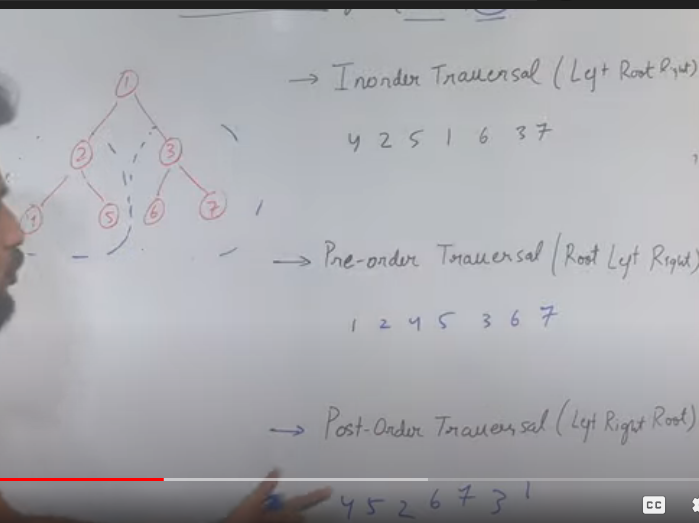 1
→ Inorder Traversal (Left Root Right)
4 2 5 1 6 3 7
2 3
4 5 6 7
→ Pre-order Traversal (Root Left Right)
1 2 4 5 3 6 7
→ Post-Order Traversal (Left Right Root)
4 5 2 6 7 3 1
CC